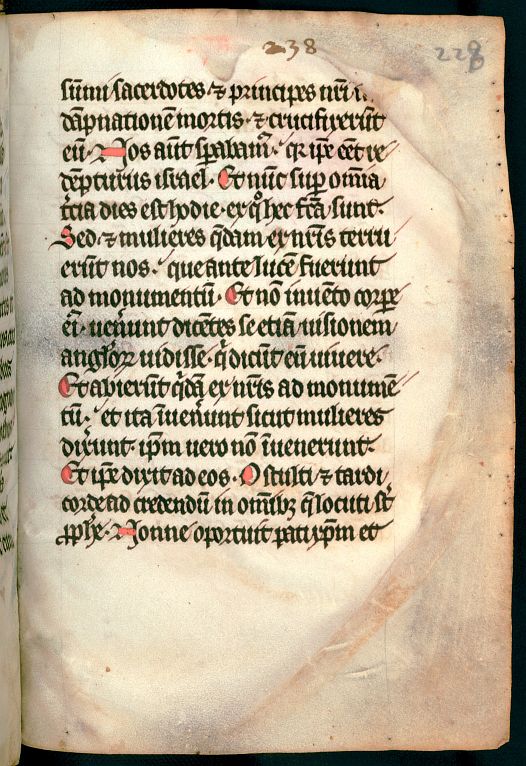 238
228
sūmi sacerdotes ⁊ principes nr̄i
dāpnationē mortis · ⁊ crucifixerūt
eū · Nos aūt sꝑabamꝰ · qr ip̄e eēt re
dēpturus israel · Et nūc suꝑ om̄ia
t̄cia dies est hodie · ex qͦ hec fc̄a sunt ·
Sed · ⁊ mulieres qͣdam ex nr̄is terru
erūt nos · que ante lucē fuerunt
ad monumentū · Et nō inuēto corpͤe
eiꝰ · uen̄unt dicētes se etiā uisionem
angl̓oꝝ uidisse · q̄ dicūt eū uiuere ·
Et abierūt qͥdā ex nr̄is ad monumē
tū · et ita īuen̄unt sicut mulieres
dix̄unt · ip̄m uero nō īuenerunt ·
Et ip̄e dixit ad eos · O stulti ⁊ tardi
corde ad credendū in om̄ibꝫ q̄ locuti st̄
ꝓph̄e · Nonne oportuit pati xp̄m et